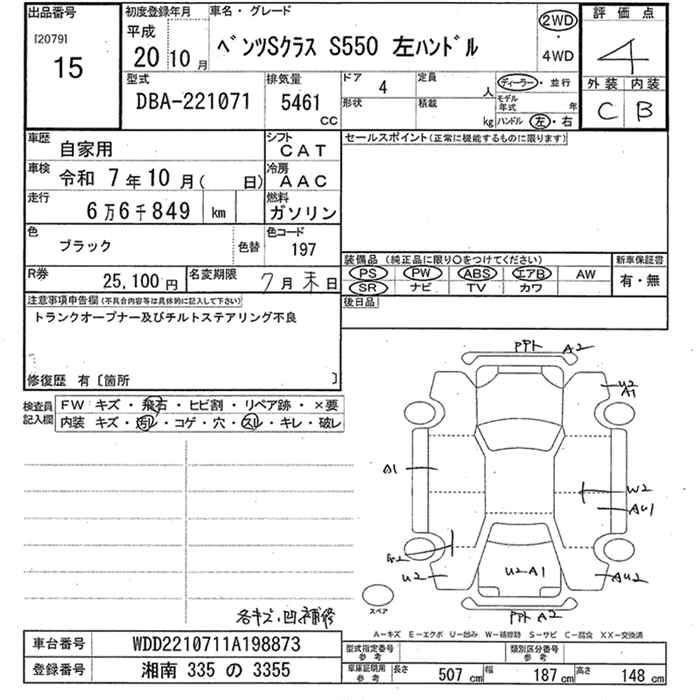 出品番号
[2079]
15
初度登録年月
平成
20 10 月
車名・グレード
ベンツSクラス S550 左ハンドル
2WD
4WD
評価点
4
外装 内装
C B
型式
DBA-221071
排気量
5461
CC
ドア
4
形状
定員
人
積載
kg
ディーラー・並行
モデル年式 年
ハンドル 左・右
車歴
自家用
シフト
CAT
車検
令和 7年10月( 日)
冷房
AAC
走行
6万6千849 km
燃料
ガソリン
色
ブラック
色替
色コード
197
R券
25,100円
名変期限
7月末日
セールスポイント(正常に機能するものに限ります)
装備品 (純正品に限り○をつけてください)
PS PW ABS エアB AW
SR ナビ TV カワ
新車保証書
有・無
後日品
注意事項申告欄(不具合内容等は具体的に記入して下さい)
トランクオープナー及びチルトステアリング不良
修復歴 有〔箇所 〕
検査員
記入欄
FW キズ・飛石・ヒビ割・リペア跡・×要
内装 キズ・汚れ・コゲ・穴・スレ・キレ・破レ
A2
U2
A1
A1
W2
AU1
U2
U2A1
AU2
A2
スペア
各キズ、凹、補修
A−キズ E−エクボ U−凹み W−補修跡 S−サビ C−腐食 XX−交換済
車台番号
WDD2210711A198873
登録番号
湘南 335 の 3355
型式指定番号
参考
類別区分番号
参考
車庫証明用
参考
長さ 507 cm 幅 187 cm 高さ 148 cm